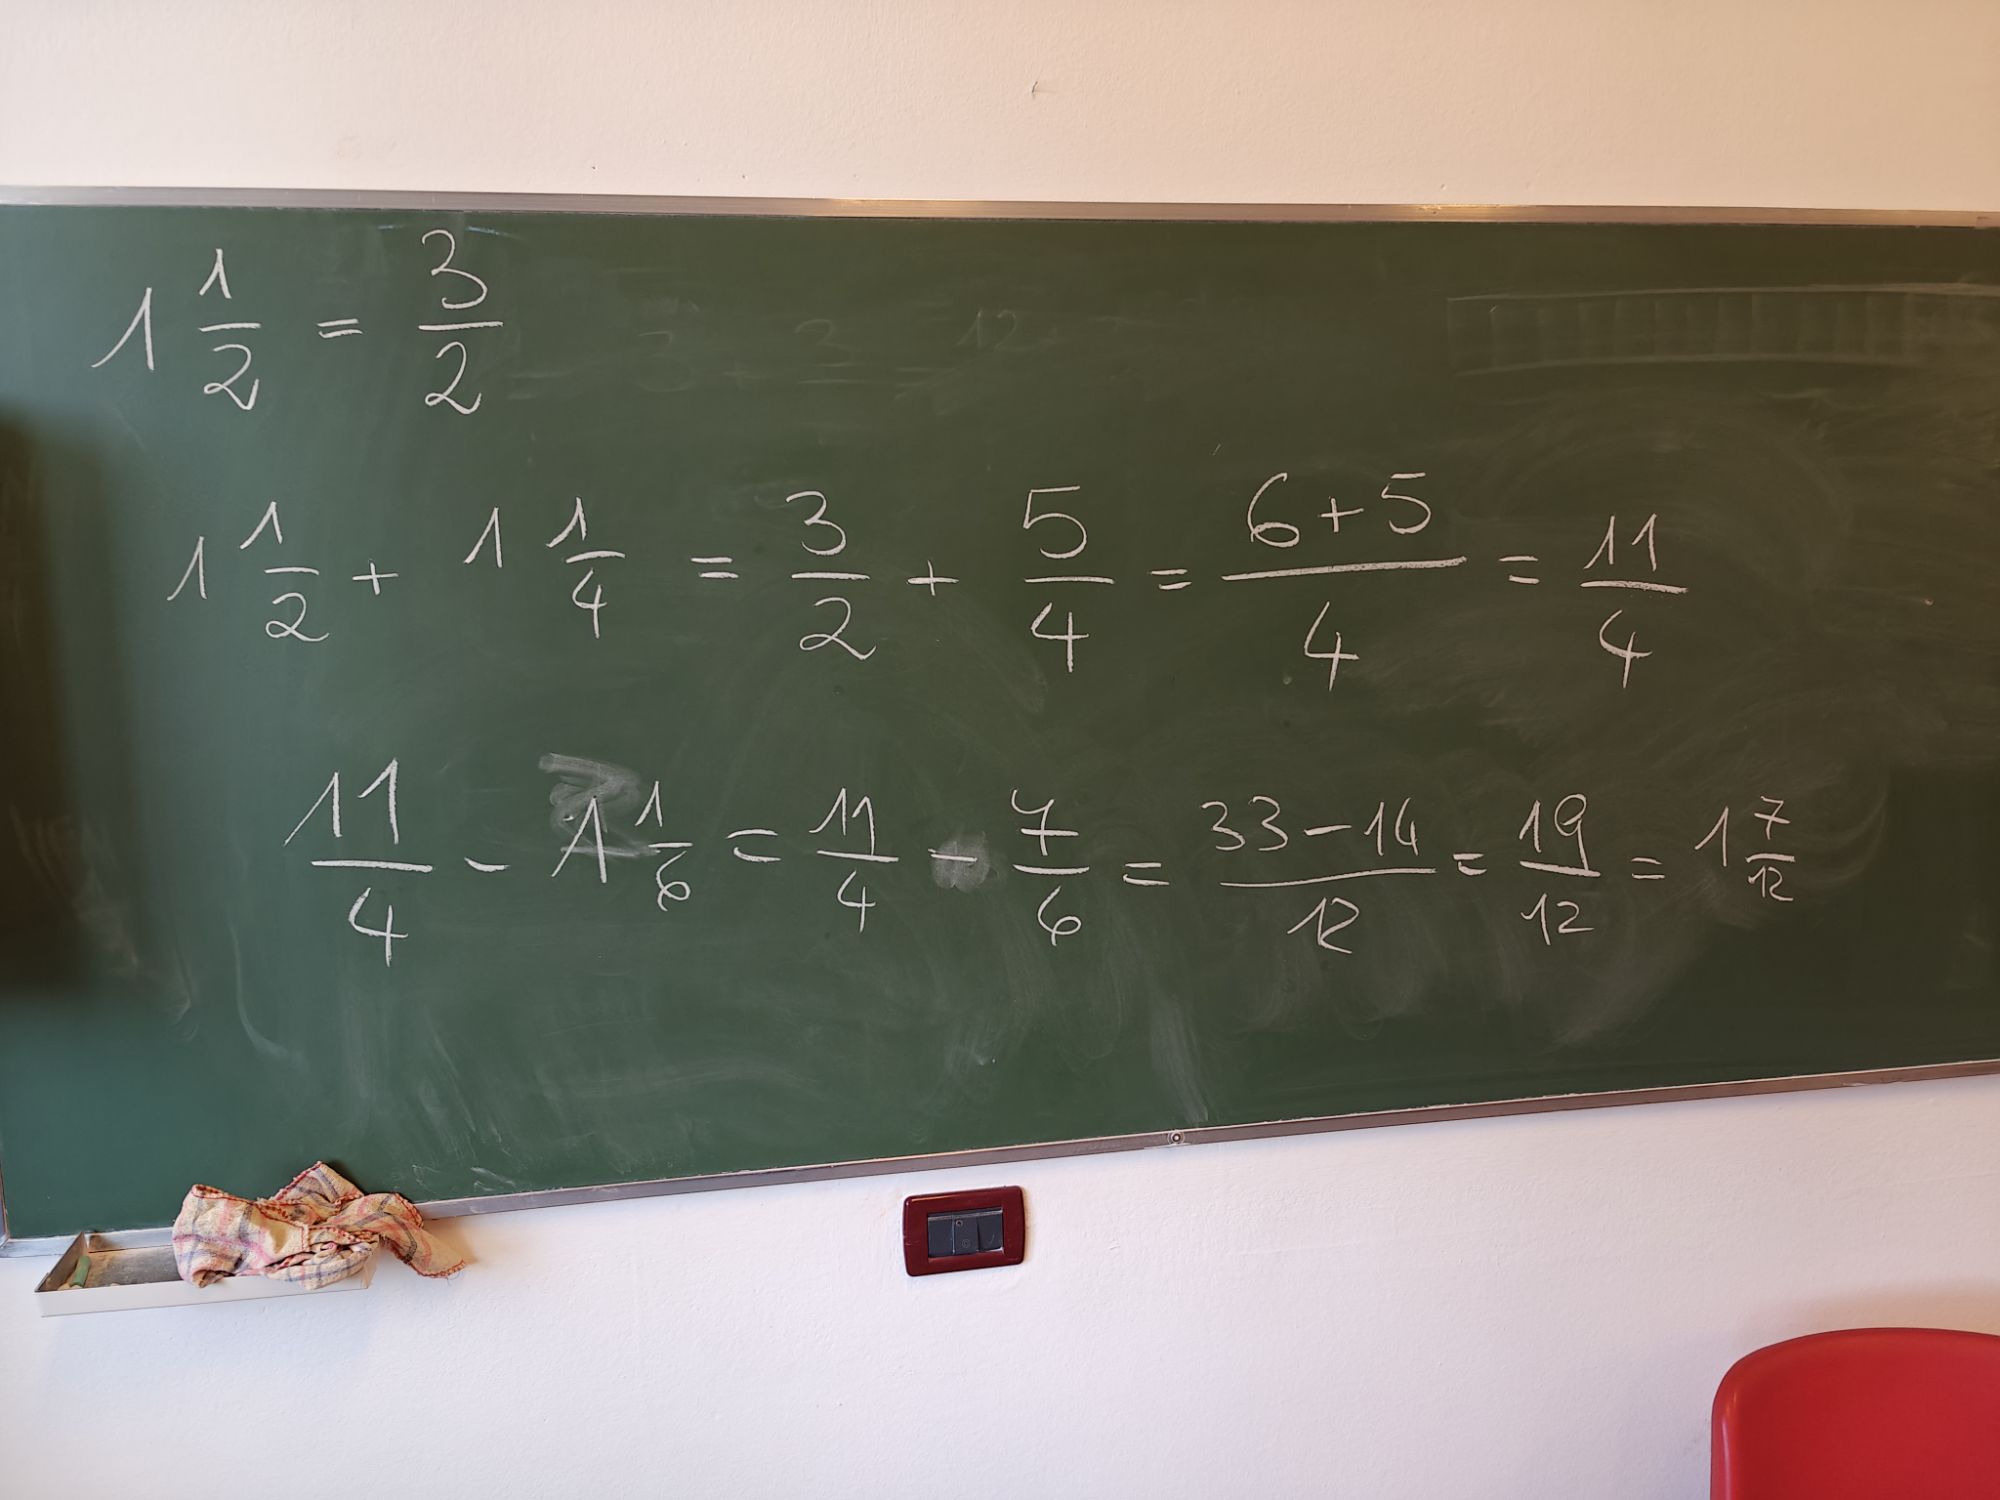 1 1/2 = 3/2
1 1/2 + 1 1/4 = 3/2 + 5/4 = (6+5)/4 = 11/4
11/4 - 1 1/6 = 11/4 - 7/6 = (33-14)/12 = 19/12 = 1 7/12